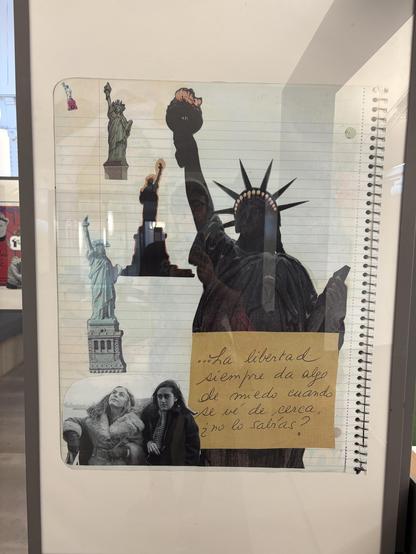 ...La libertad
siempre da algo
de miedo cuando
se ve de cerca,
¿no lo sabías?